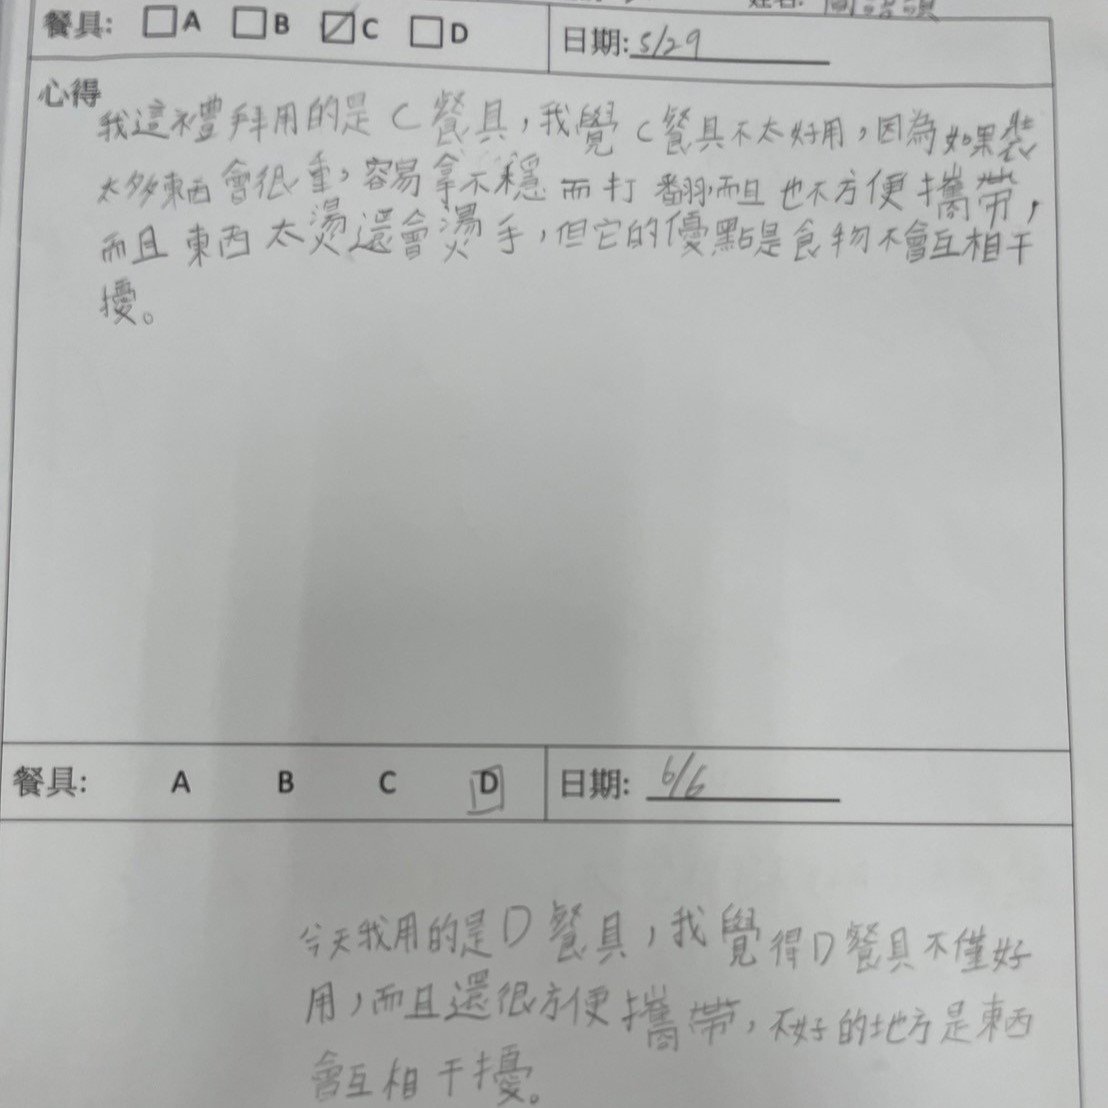 餐具: □A □B ☑C □D 日期: 5/29
心得
我這禮拜用的是C餐具,我覺C餐具不太好用,因為如果裝
太多東西會很重,容易拿不穩而打翻,而且也不方便攜帶,
而且東西太燙還會燙手,但它的優點是食物不會互相干
擾。
餐具: A B C D 日期: 6/6
今天我用的是D餐具,我覺得D餐具不僅好
用,而且還很方便攜帶,不好的地方是東西
會互相干擾。